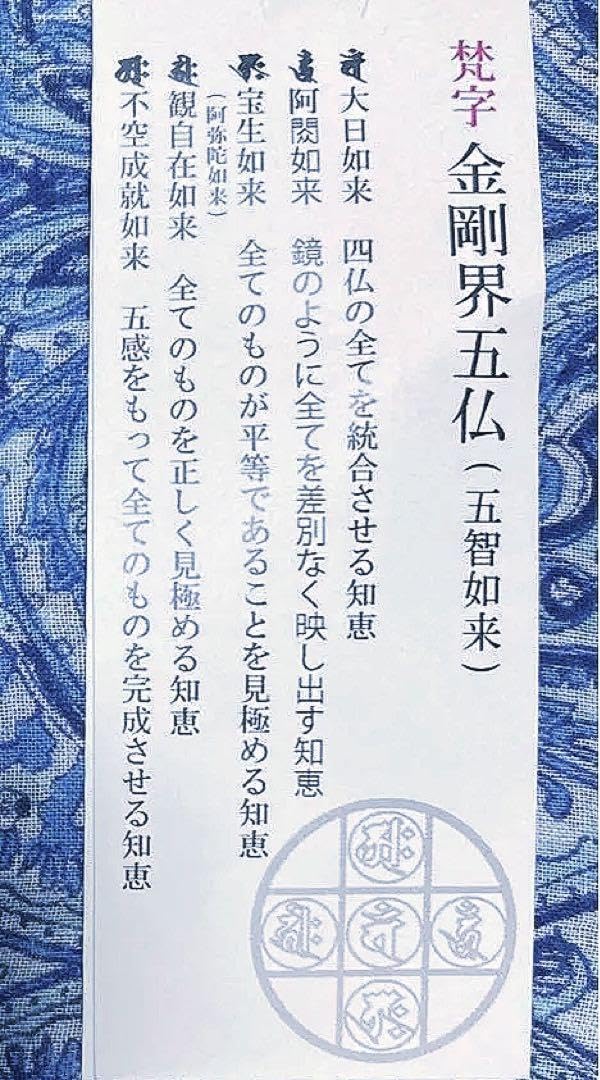 梵字 金剛界五仏（五智如来）
大日如来 四仏の全てを統合させる知恵
阿閦如来 鏡のように全てを差別なく映し出す知恵
宝生如来 全てのものが平等であることを見極める知恵
（阿弥陀如来）
観自在如来 全てのものを正しく見極める知恵
不空成就如来 五感をもって全てのものを完成させる知恵